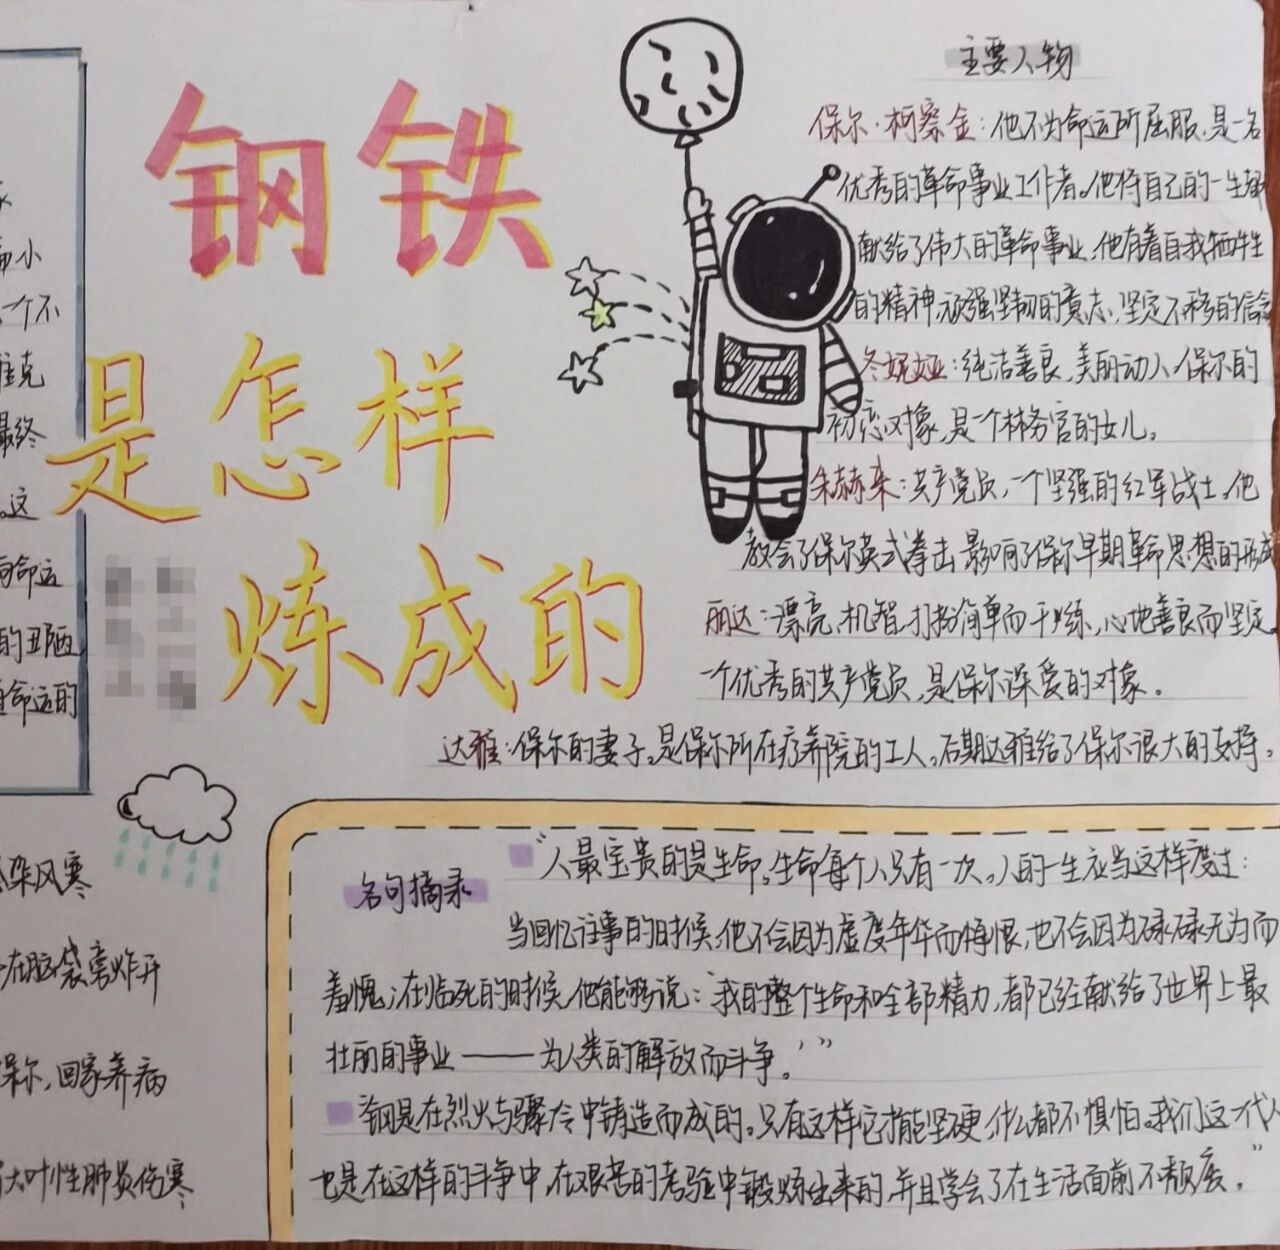 钢铁
是怎样
炼成的
主要人物
保尔·柯察金：他不为命运所屈服，是一名
优秀的革命事业工作者。他将自己的一生都
献给了伟大的革命事业，他有着自我牺牲
的精神，顽强坚韧的意志，坚定不移的信念
冬妮娅：纯洁善良，美丽动人，保尔的
初恋对象，是一个林务官的女儿。
朱赫来：共产党员，一个坚强的红军战士。他
教会了保尔英式拳击，影响了保尔早期革命思想的形成
丽达：漂亮，机智，打扮简单而干练，心地善良而坚定
一个优秀的共产党员，是保尔深爱的对象。
达雅：保尔的妻子。是保尔所在疗养院的工人。后期达雅给了保尔很大的支持。
小
一个不
维克
最终
。这
命运
的丑陋
命运的
染风寒
在脑袋旁炸开
保尔，回家养病
大叶性肺炎伤寒
名句摘录
“人最宝贵的是生命。生命每个人只有一次。人的一生应当这样度过：
当回忆往事的时候，他不会因为虚度年华而悔恨，也不会因为碌碌无为而
羞愧；在临死的时候，他能够说：‘我的整个生命和全部精力，都已经献给了世界上最
壮丽的事业——为人类的解放而斗争。’”
钢是在烈火与骤冷中铸造而成的。只有这样它才能坚硬，什么都不惧怕。我们这一代人
也是在这样的斗争中，在艰苦的考验中锻炼出来的，并且学会了在生活面前不颓废。”